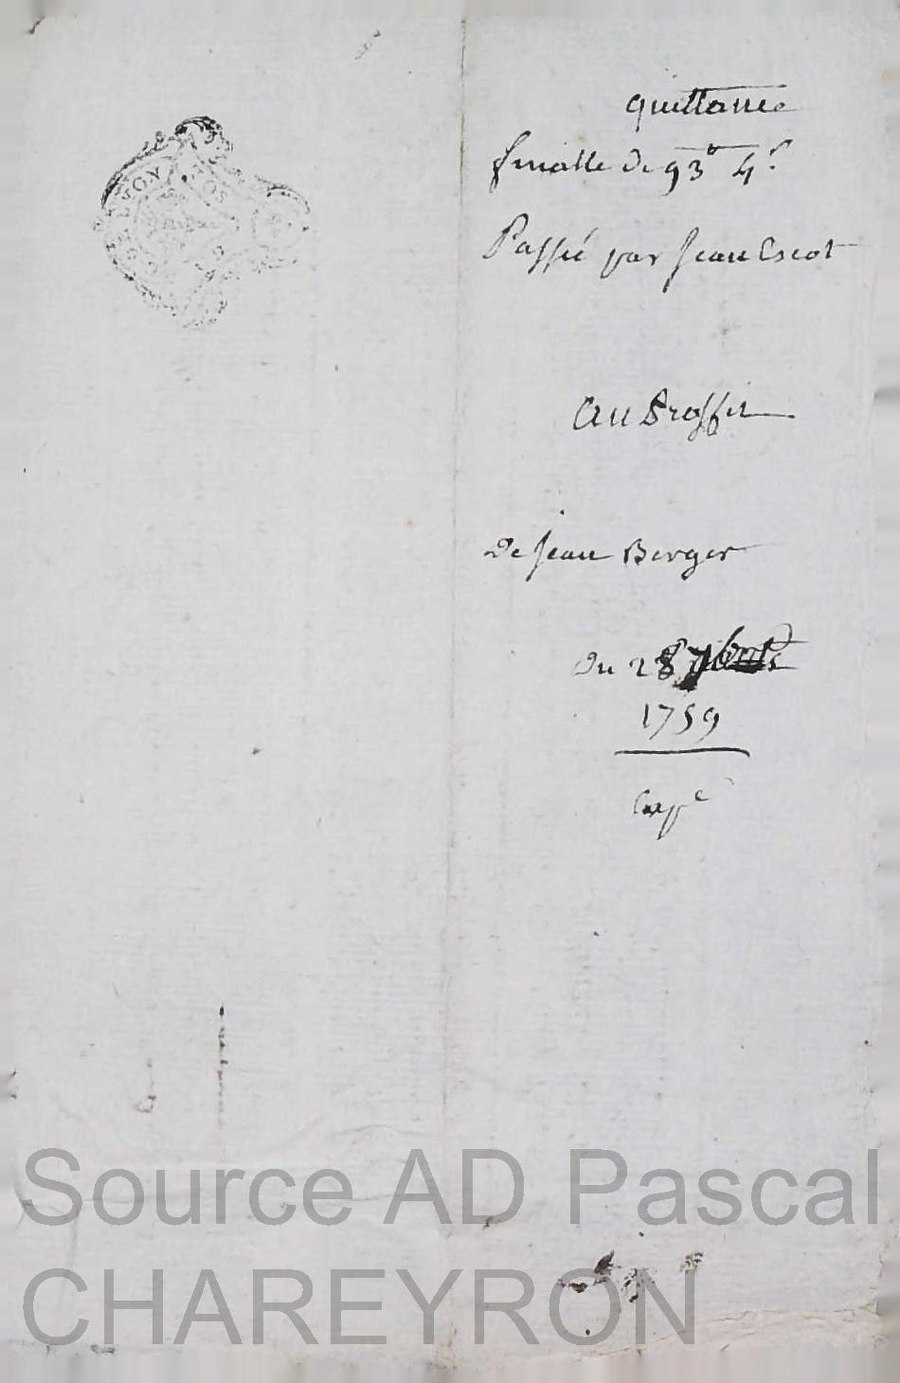 quittance
finalle de 93# 4s
Passé par Jean Escot
Au Proffit
De Jean Berger
Du 28 7bre
1759
Exp.e
Source AD Pascal
CHAREYRON